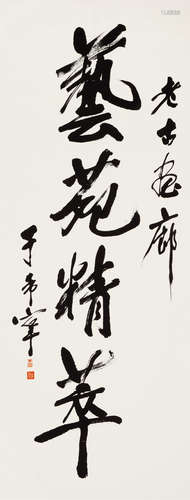 老古画廊
藝苑精萃
于希寧